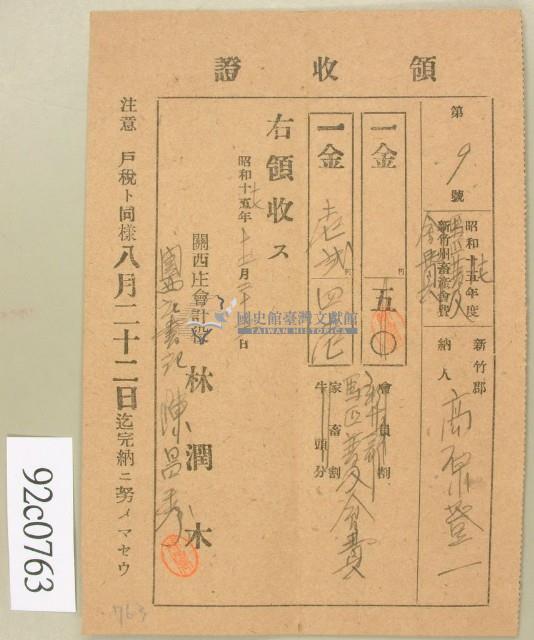 領收證
第9號
昭和十五年度
新竹州畜產會費
新竹郡
納人 高原登一
一金
五〇
會員割
一金
壱 四
家畜割
牛 頭分
會費
右領收ス
昭和十五年 月 日
關西庄會計役 林潤木
書記 陳昌秀
注意 戶稅ト同樣八月二十二日迄完納ニ努メマセウ
國史館臺灣文獻館
TAIWAN HISTORICA
92c0763
763